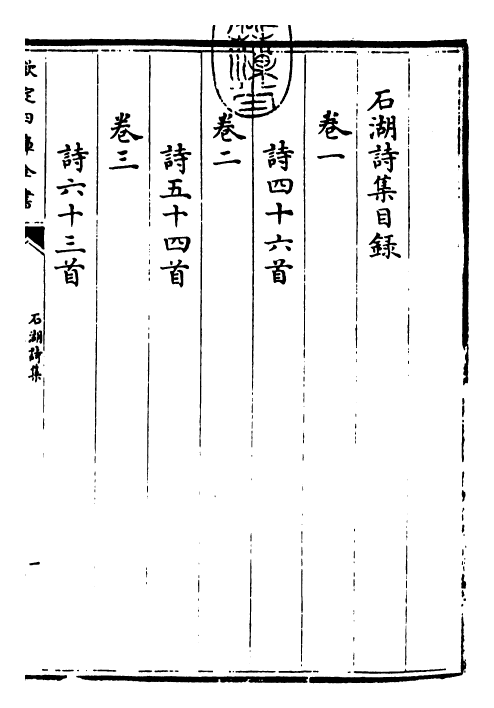 石湖詩集目錄
卷一
詩四十六首
卷二
詩五十四首
卷三
詩六十三首
欽定四庫全書
石湖詩集
一